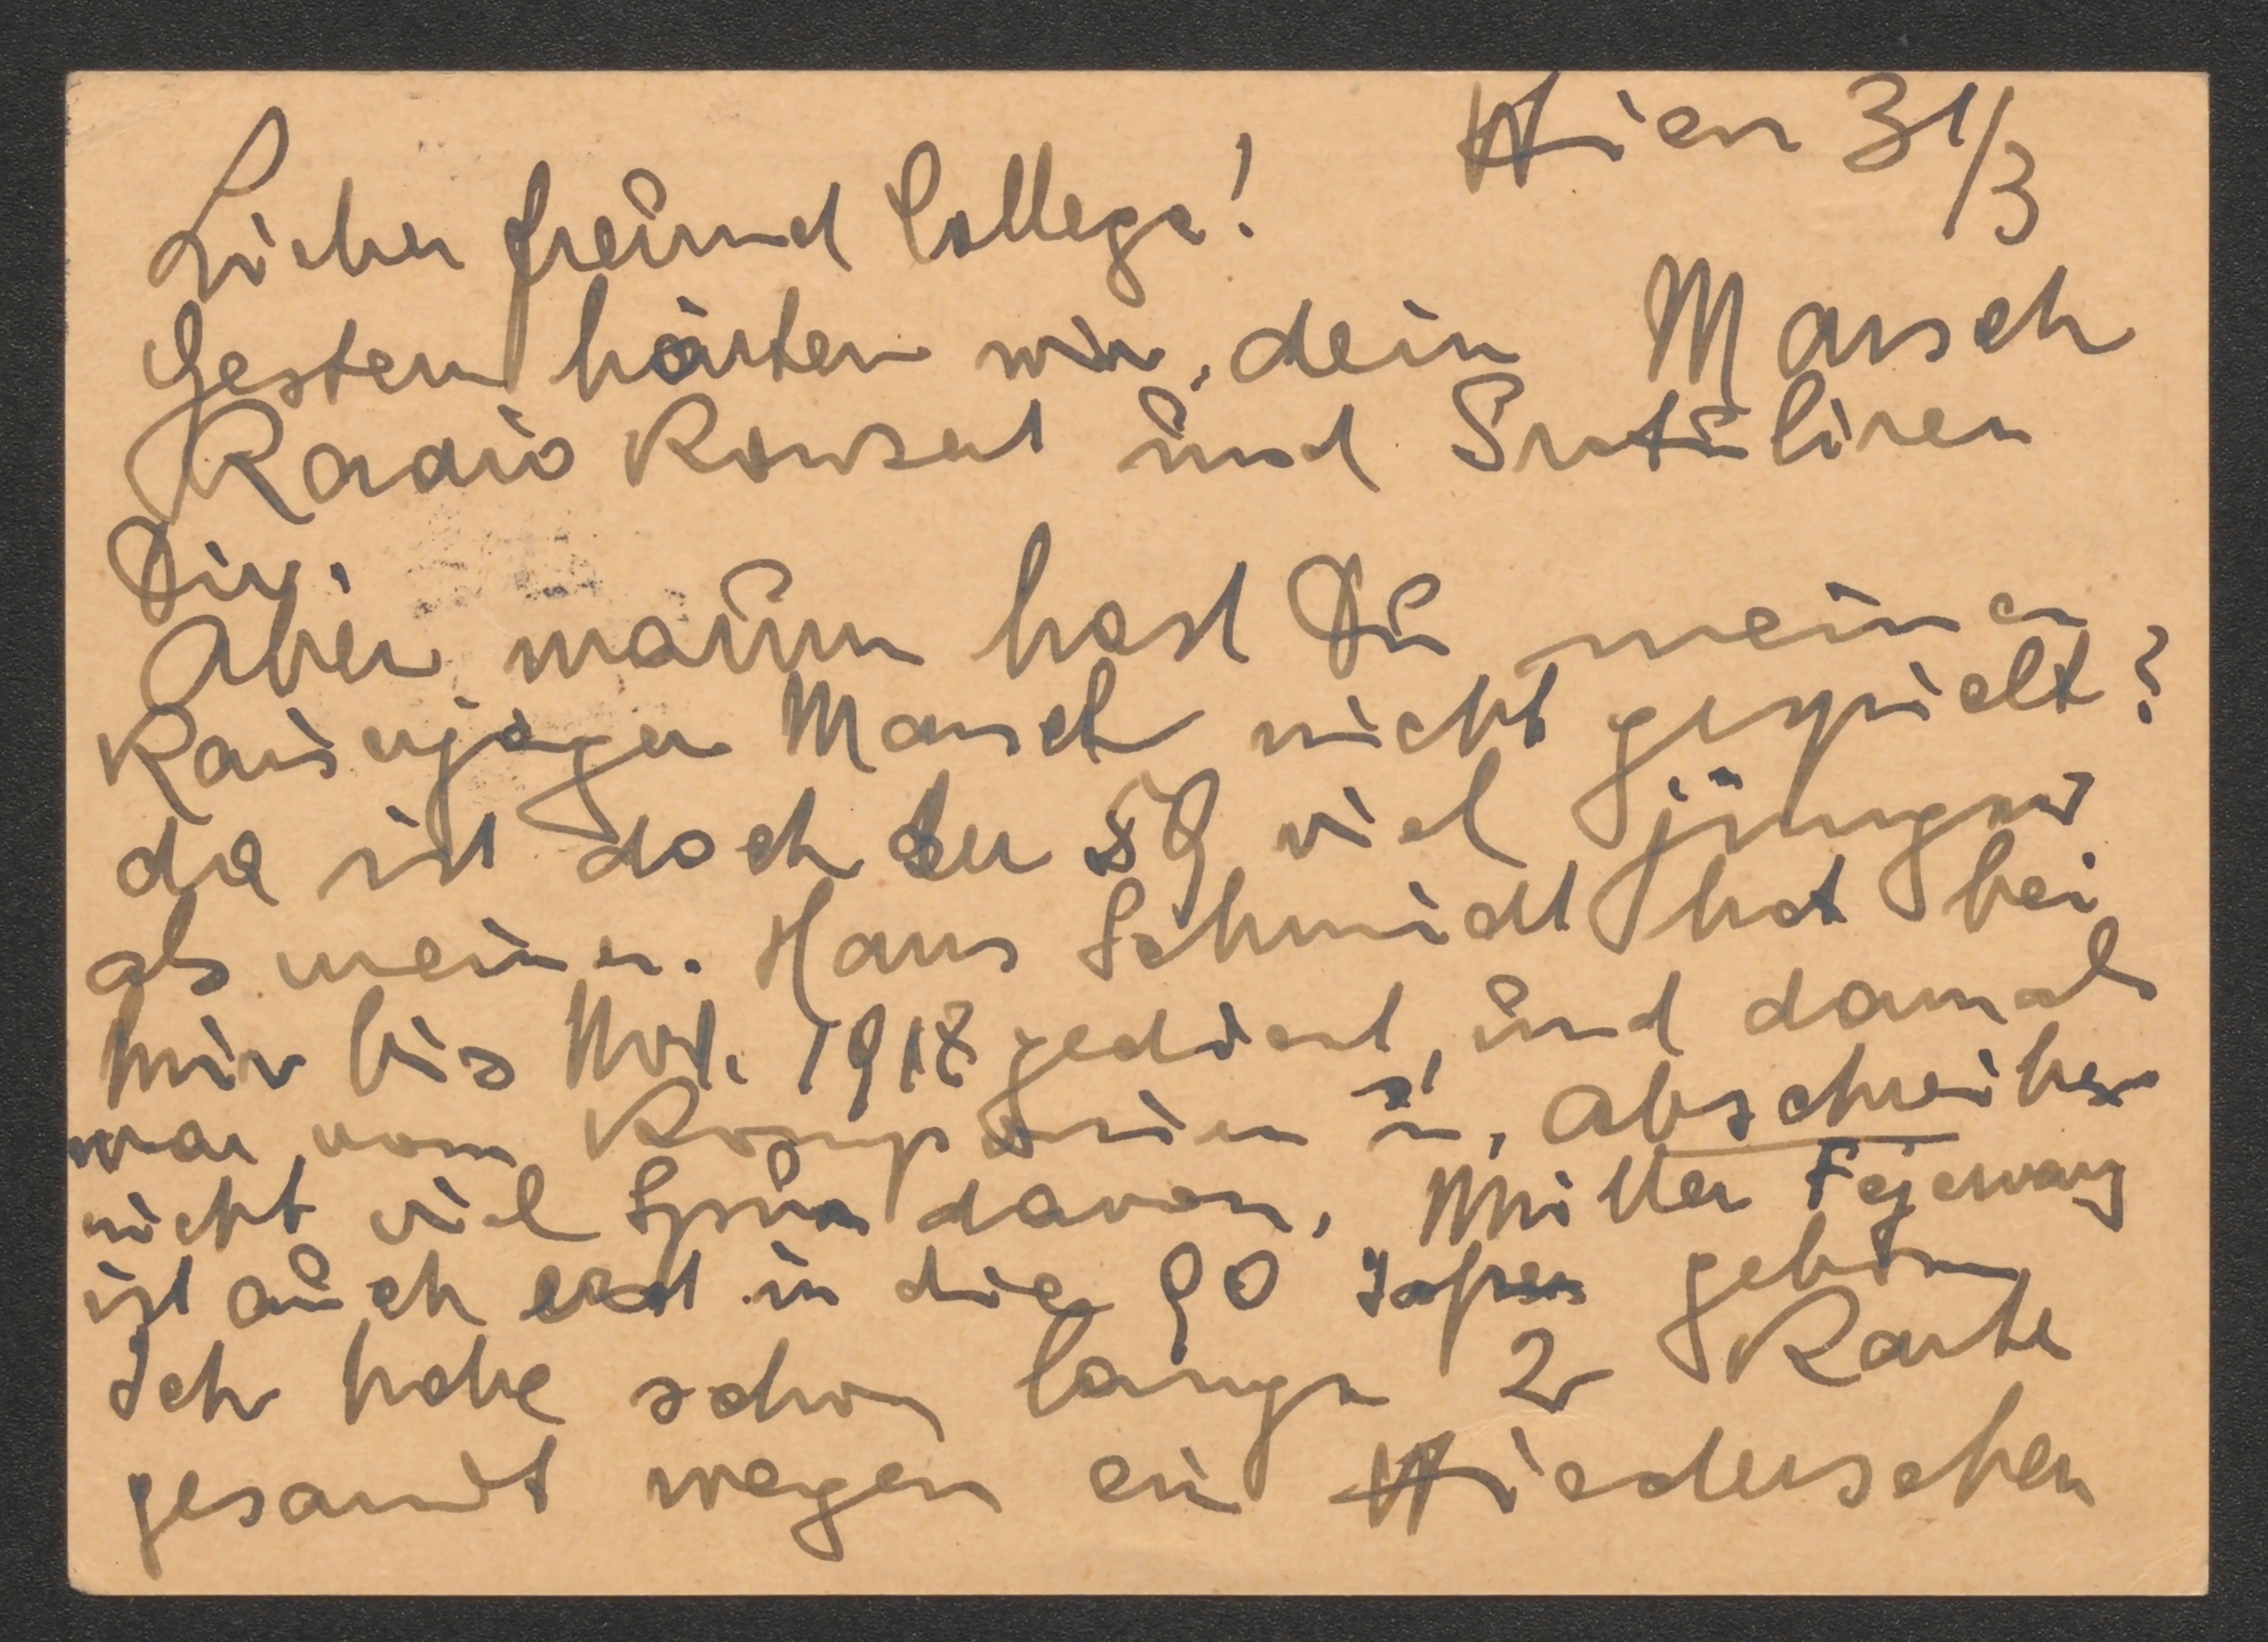 Wien 31/3
Lieber Freund College!
Gestern hörten wir, dein Marsch
Radio Konzert und Gratuliren
Dir.
Aber warum hast Du meinen
Kaiserjäger Marsch nicht gespielt?
da ist doch der 59 viel jünger
als meiner. Hans Schmidt hat bei
mir bis Nov. 1918 gedient, und damals
war vom Komponieren u, abschreiben
nicht viel Spur davon. Müller Fejervary
ist auch erst in die 90 Jahren geboren
Ich habe schon lange 2 Karte
gesandt wegen ein Wiedersehen